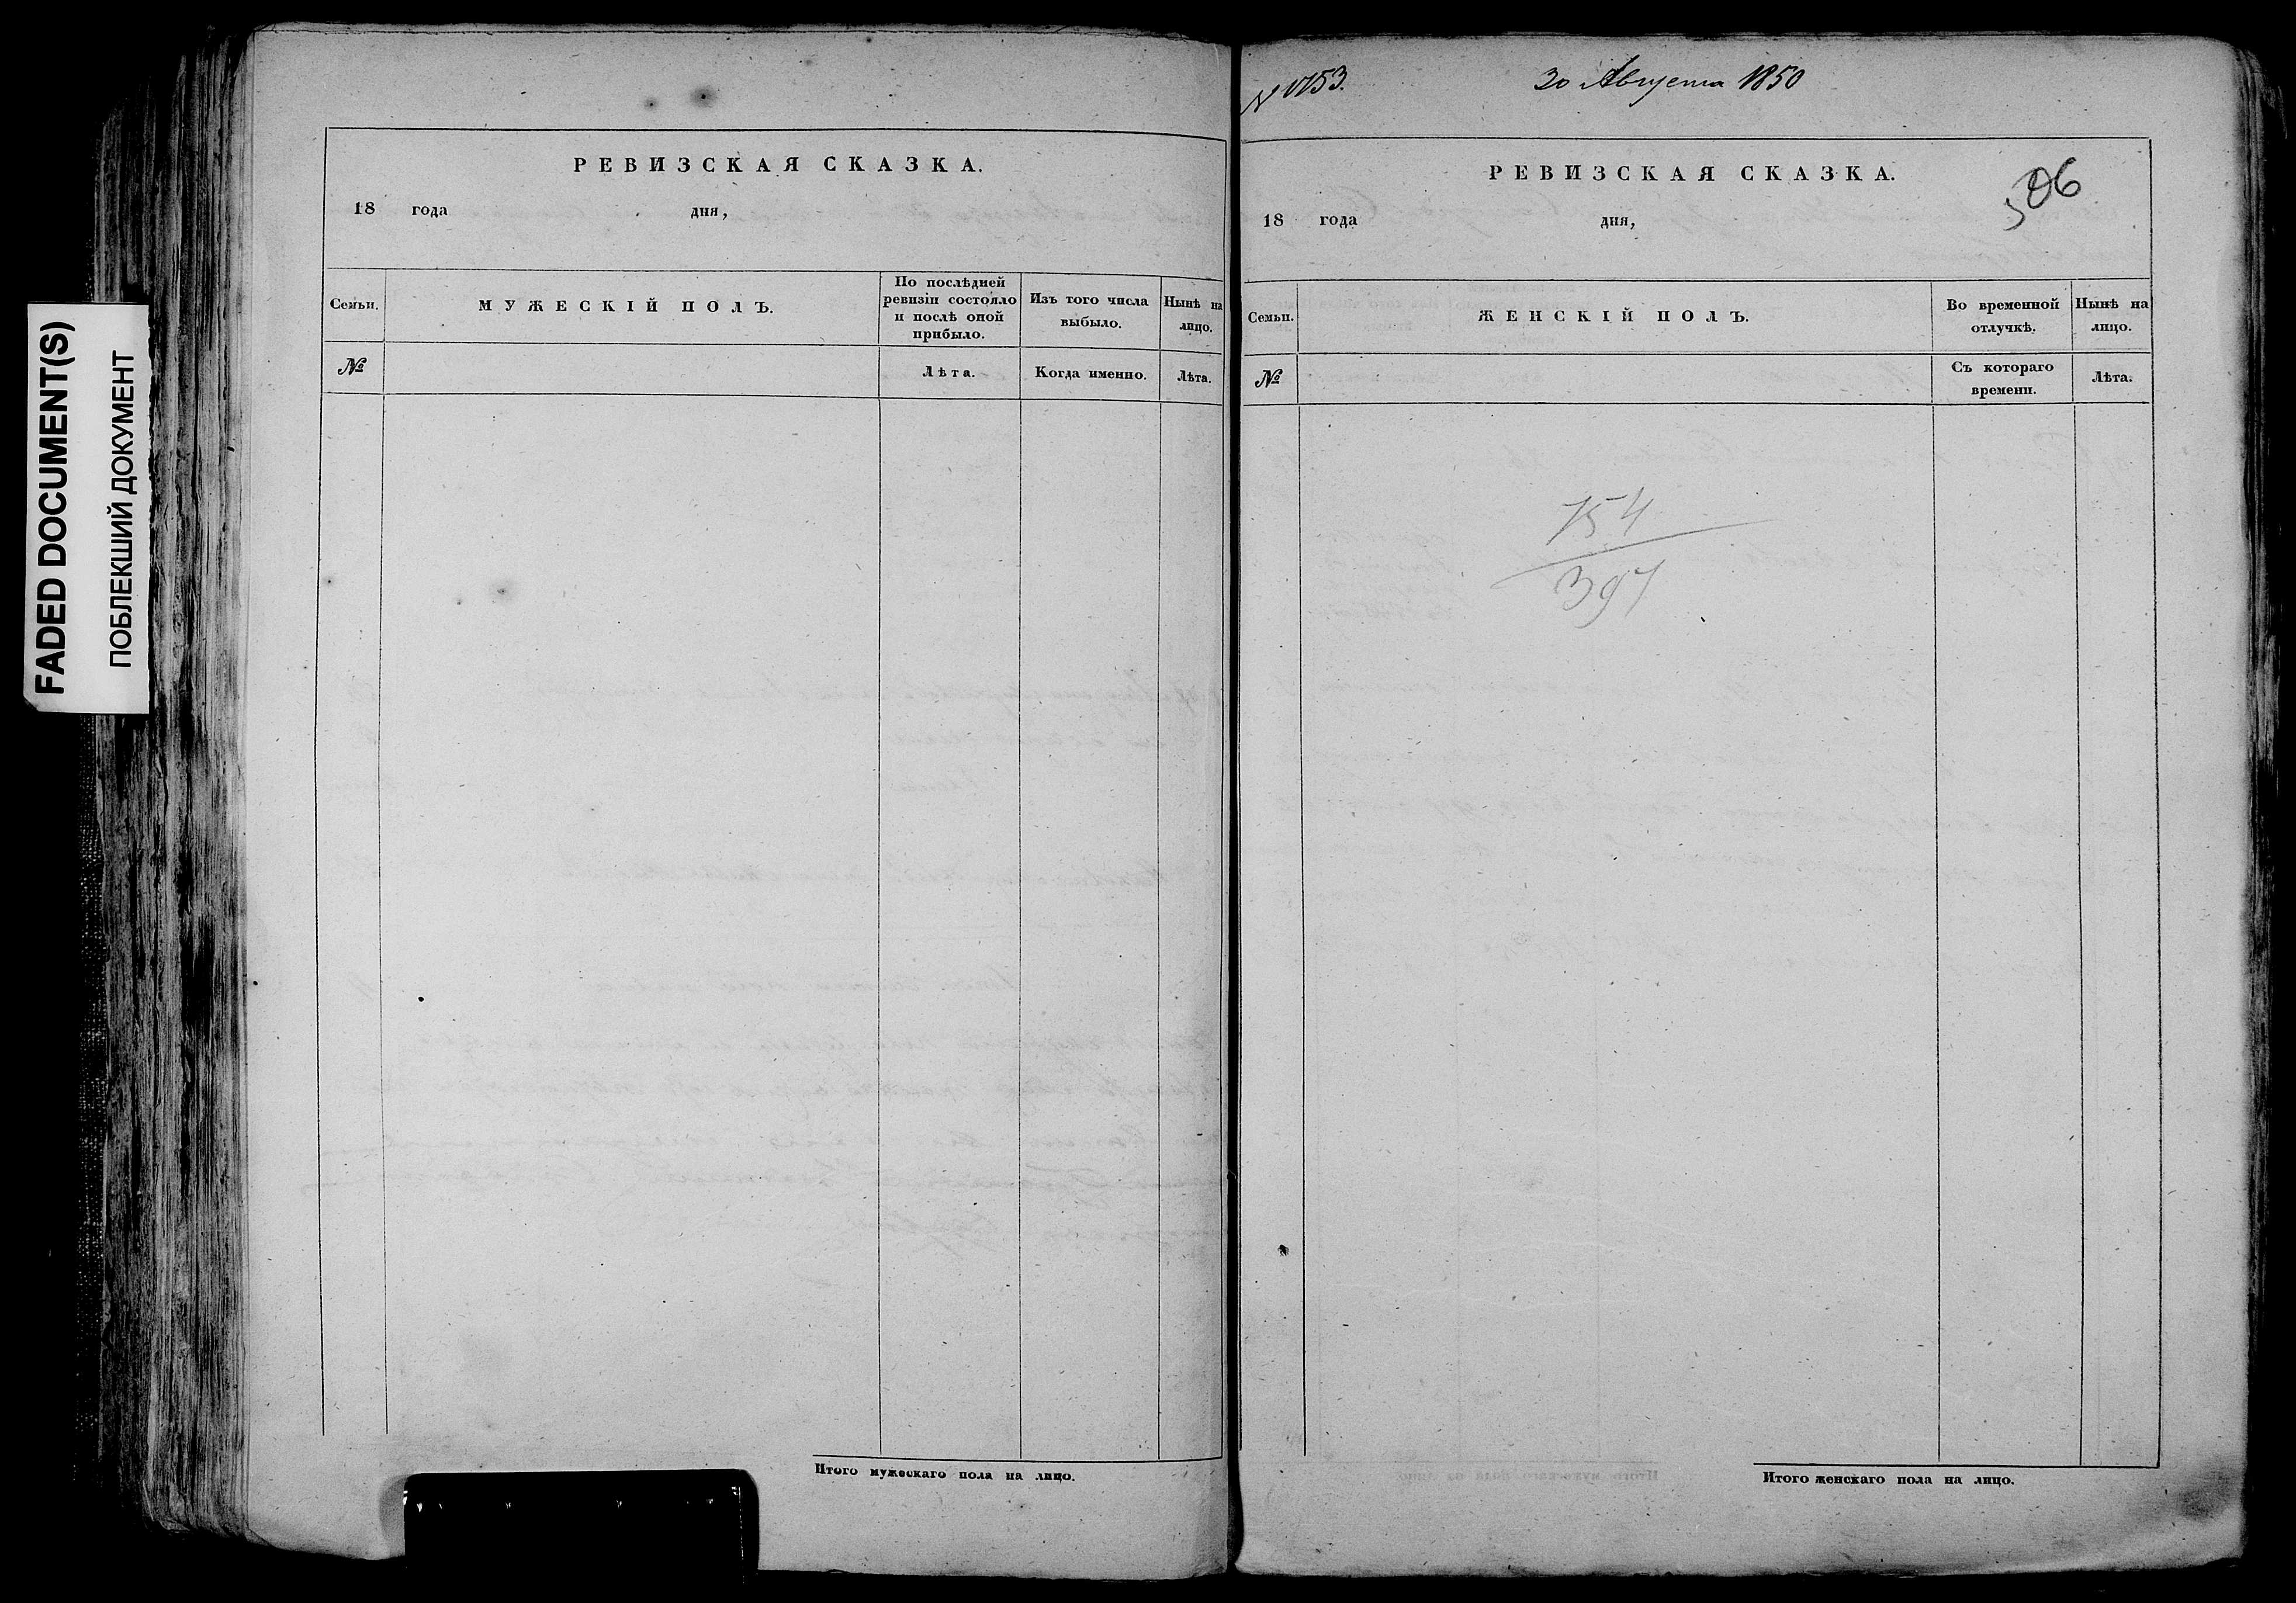 FADED DOCUMENT(S)
ПОБЛЕКШИЙ ДОКУМЕНТ
РЕВИЗСКАЯ СКАЗКА.
18 года дня,
Семьи.
МУЖЕСКІЙ ПОЛЪ.
По послѣдней
ревизіи состояло
и послѣ оной
прибыло.
Изъ того числа
выбыло.
Нынѣ на
лицо.
№
Лѣта.
Когда именно.
Лѣта.
Итого мужескаго пола на лицо.
30 Августа 1850
РЕВИЗСКАЯ СКАЗКА.
306
18 года дня,
Семьи.
ЖЕНСКІЙ ПОЛЪ.
Во временной
отлучкѣ.
Нынѣ на
лицо.
№
Съ котораго
времени.
Лѣта.
754
397
Итого женскаго пола на лицо.